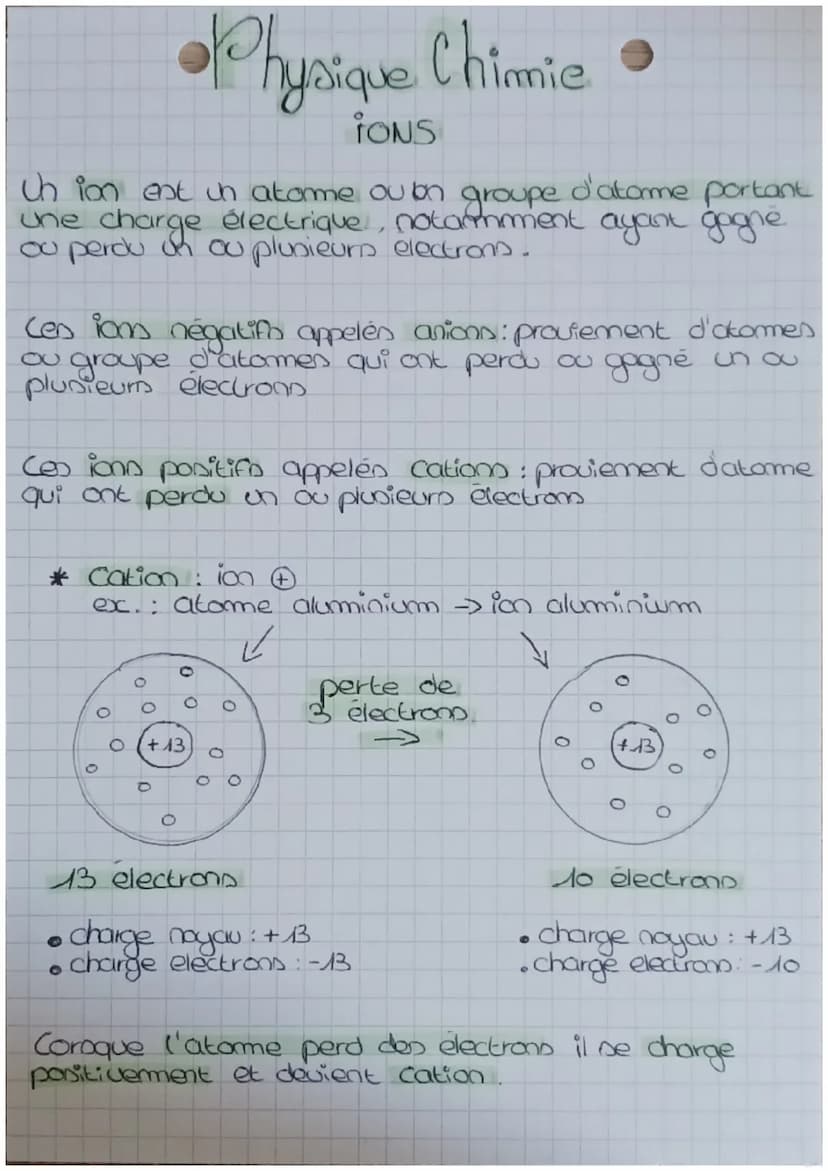 Physique Chimie
IONS
Un ion est un atome ou un groupe d'atome portant
une charge électrique, notamment ayant gagné
ou perdu un ou plusieurs électrons.
Les ions négatifs appelés anions : proviennent d'atomes
ou groupe d'atomes qui ont perdu ou gagné un ou
plusieurs électrons
Les ions positifs appelés cations : proviennent d'atome
qui ont perdu un ou plusieurs électrons
* Cation : ion ⊕
ex. : atome aluminium -> ion aluminium
perte de
3 électrons.
->
+13
+13
13 électrons
10 électrons
• charge noyau : +13
• charge electrons : -13
• charge noyau : +13
• charge electron : -10
Lorsque l'atome perd des électrons il se charge
positivement et devient cation.